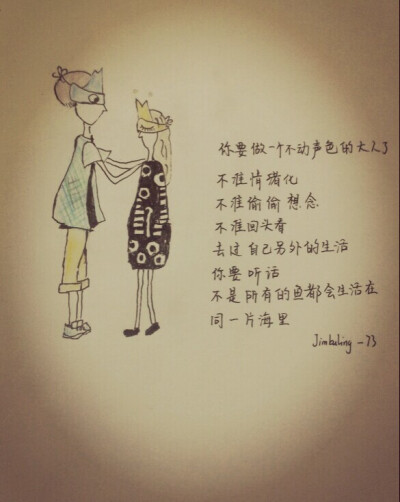 你要做一个不动声色的大人了
不准情绪化
不准偷偷想念
不准回头看
去过自己另外的生活
你要听话
不是所有的鱼都会生活在
同一片海里